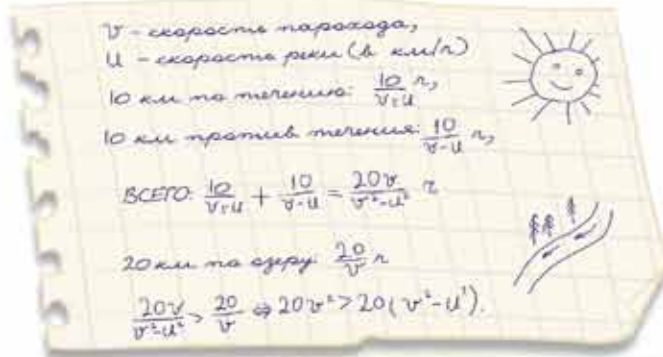 v - скорость парохода,
u - скорость реки (в км/ч)
10 км по течению: 10/(v+u) ч,
10 км против течения: 10/(v-u) ч,
ВСЕГО: 10/(v+u) + 10/(v-u) = 20v/(v²-u²) ч
20 км по озеру: 20/v ч
20v/(v²-u²) > 20/v ⇔ 20v² > 20(v²-u²).